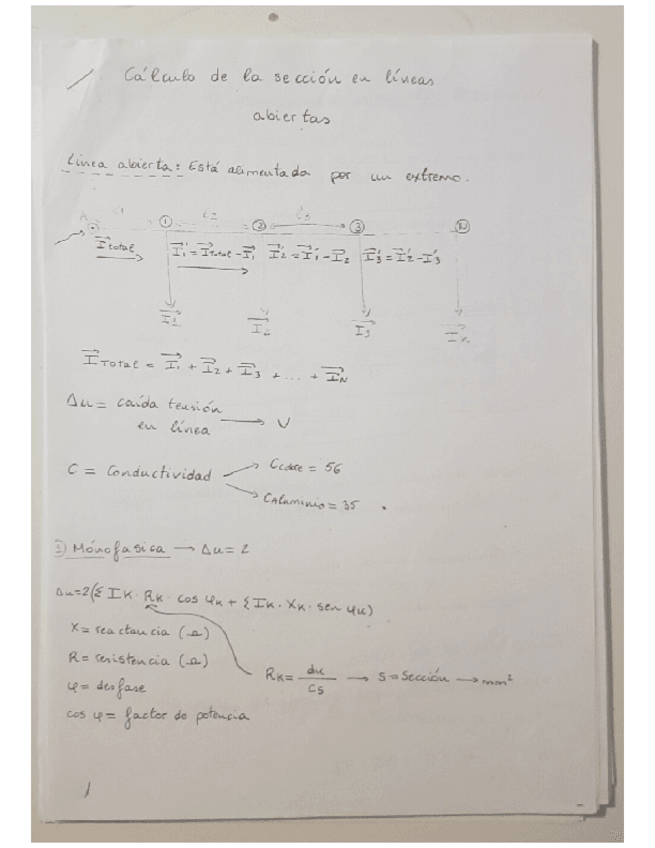 Cálculo de la sección en líneas
abiertas
Línea abierta: Está alimentada por un extremo.
A
① ② ③ Ⓝ
I⃗total I⃗'₁ = I⃗total - I⃗₁ I⃗'₂ = I⃗'₁ - I⃗₂ I⃗'₃ = I⃗'₂ - I⃗'₃
I⃗₁ I⃗₂ I⃗₃
I⃗Total = I⃗₁ + I⃗₂ + I⃗₃ + ... + I⃗N
Δu = caída tensión
en línea → V
C = Conductividad → Ccobre = 56
→ CAluminio = 35
① Monofasica → Δu = 2
Δu=2(Σ IK · RK · cos φK + Σ IK · XK · sen φK)
X = reactancia (Ω)
R = resistencia (Ω)
RK = du / CS → S = Sección → mm²
φ = desfase
cos φ = factor de potencia
1